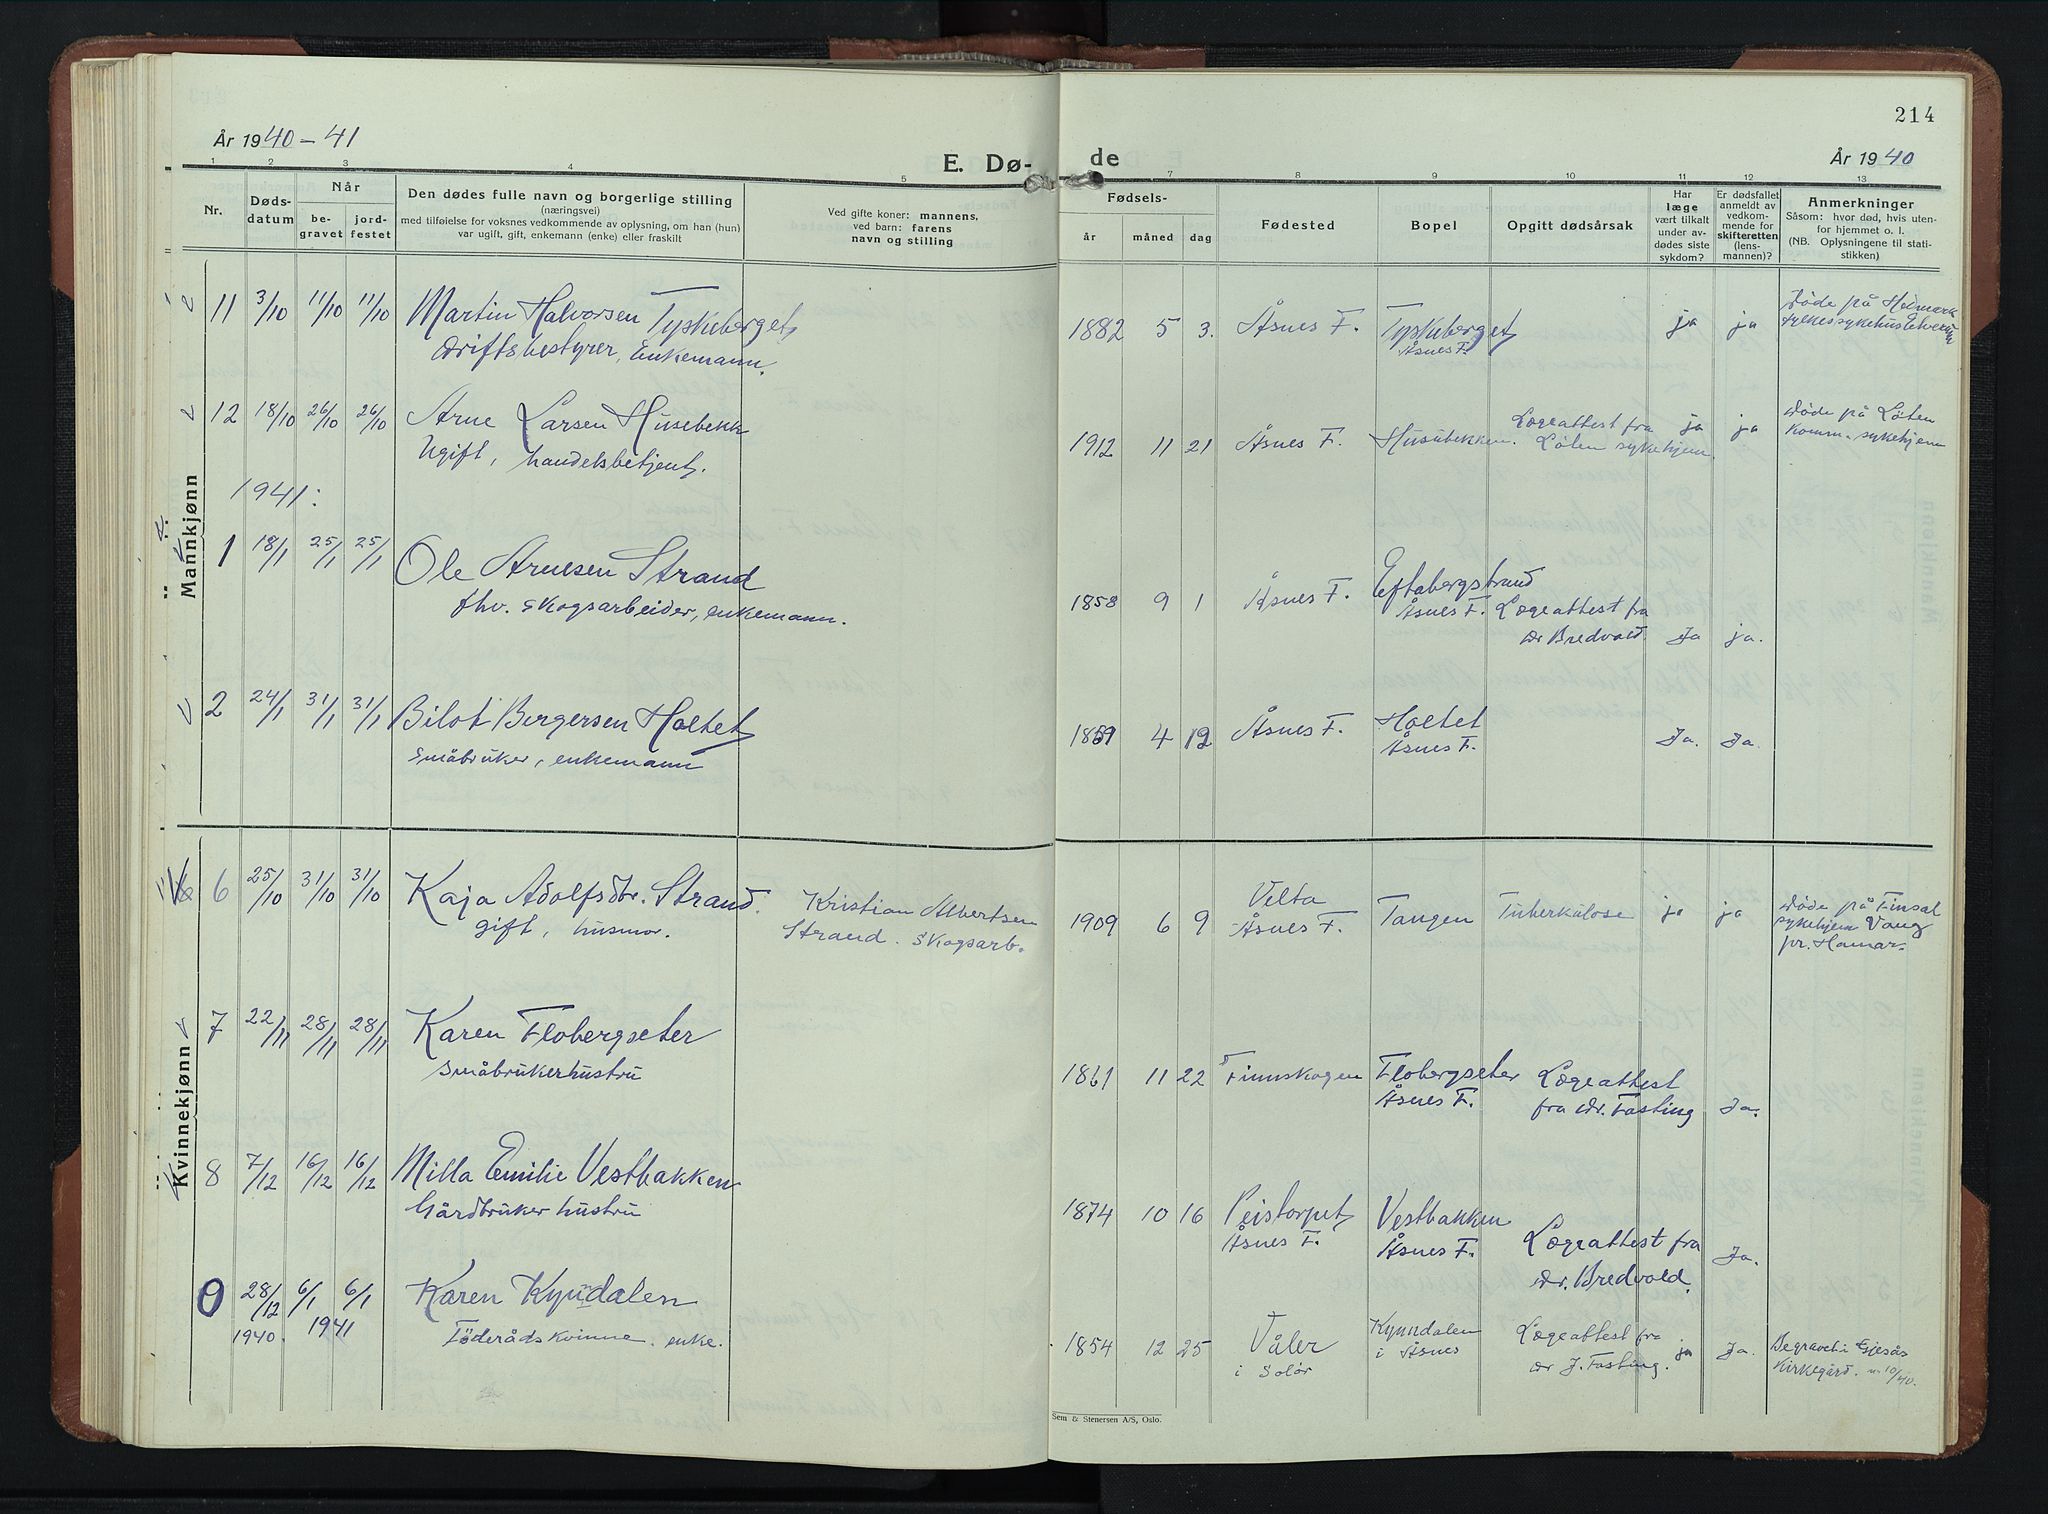 214
År 1940-41
E. Dø- de
År 1940
1 2 3 4 5 7 8 9 10 11 12 13
Nr.
Døds-
datum
Når
be-
gravet
jord-
festet
Den dødes fulle navn og borgerlige stilling
(næringsvei)
med tilføielse for voksnes vedkommende av oplysning, om han (hun)
var ugift, gift, enkemann (enke) eller fraskilt
Ved gifte koner: mannens,
ved barn: farens
navn og stilling
Fødsels-
år måned dag
Fødested
Bopel
Opgitt dødsårsak
Har
læge
vært tilkalt
under av-
dødes siste
sykdom?
Er dødsfallet
anmeldt av
vedkom-
mende for
skifteretten
(lens-
mannen)?
Anmerkninger
Såsom: hvor død, hvis uten-
for hjemmet o. l.
(NB. Oplysningene til stati-
stikken)
Mannkjønn
11 3/10 11/10 11/10 Martin Halvorsen Tyskeberget,
driftsbestyrer, Enkemann.
1882 5 3. Åsnes F. Tyskeberget,
Åsnes F.
ja ja
Døde på Hedmark
fylkessykehus Elverum
12 18/10 26/10 26/10 Arne Larsen Husebekk
Ugift, handelsbetjent.
1912 11 21 Åsnes F. Husubekken.
Lægeattest fra
Løten sykehjem.
ja ja
Døde på Løten
komm. sykehjem
1941:
1 18/1 25/1 25/1 Ole Arnesen Strand
fhv. skogsarbeider, enkemann.
1858 9 1 Åsnes F. Eftabergstrand
Åsnes F.
Lægeattest fra
dr Bredvold.
Ja ja.
2 24/1 31/1 31/1 Bilot Bergersen Holtet,
Småbruker, enkemann
1859 4 12 Åsnes F. Holtet
Åsnes F.
Ja. Ja.
Kvinnekjønn
6 25/10 31/10 31/10 Kaja Adolfsdtr. Strand.
gift, husmor.
Kristian Albertsen
Strand. Skogsarb.
1909 6 9 Velta
Åsnes F.
Tangen Tuberkulose ja ja
Døde på Finsal
sykehjem Vang
pr. Hamar.
7 22/11 28/11 28/11 Karen Flobergseter
Småbrukerhustru
1861 11 22 Finnskogen Flobergseter
Åsnes F.
Lægeattest
fra dr. Fasting
Ja.
8 7/12 16/12 16/12 Milla Emilie Vestbakken
Gårdbruker hustru
1874 10 16 Peistorpet,
Åsnes F.
Vestbakken
Åsnes F.
Lægeattest fra
dr. Bredvold.
Ja.
0 28/12 6/1 6/1 Karen Kynndalen
1940. 1941 Föderådskvinne. enke.
1854 12 25 Våler
i Solør
Kynndalen
i Åsnes
Lægeattest fra
dr J. Fasting.
ja Ja.
Begravet i Gjesås
Kirkegård. 10/40.
Sem & Stenersen A/S, Oslo.